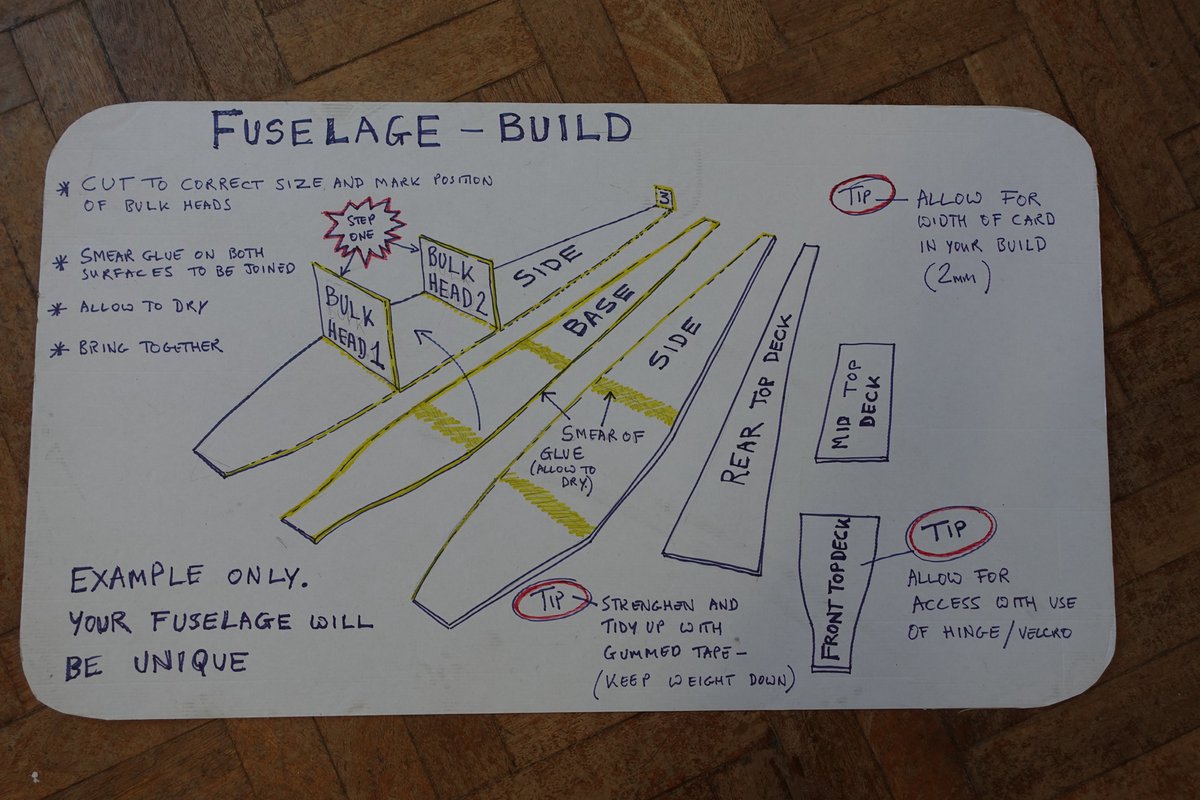 FUSELAGE – BUILD
* CUT TO CORRECT SIZE AND MARK POSITION
OF BULK HEADS
* SMEAR GLUE ON BOTH
SURFACES TO BE JOINED
* ALLOW TO DRY
* BRING TOGETHER
STEP
ONE
BULK
HEAD 1
BULK
HEAD 2
3
SIDE
BASE
SIDE
SMEAR OF
GLUE
(ALLOW TO
DRY.)
REAR TOP DECK
MID TOP
DECK
FRONT TOP DECK
TIP
ALLOW FOR
WIDTH OF CARD
IN YOUR BUILD
(2mm)
TIP
ALLOW FOR
ACCESS WITH USE
OF HINGE/VELCRO
TIP
STRENGHEN AND
TIDY UP WITH
GUMMED TAPE –
(KEEP WEIGHT DOWN)
EXAMPLE ONLY.
YOUR FUSELAGE WILL
BE UNIQUE